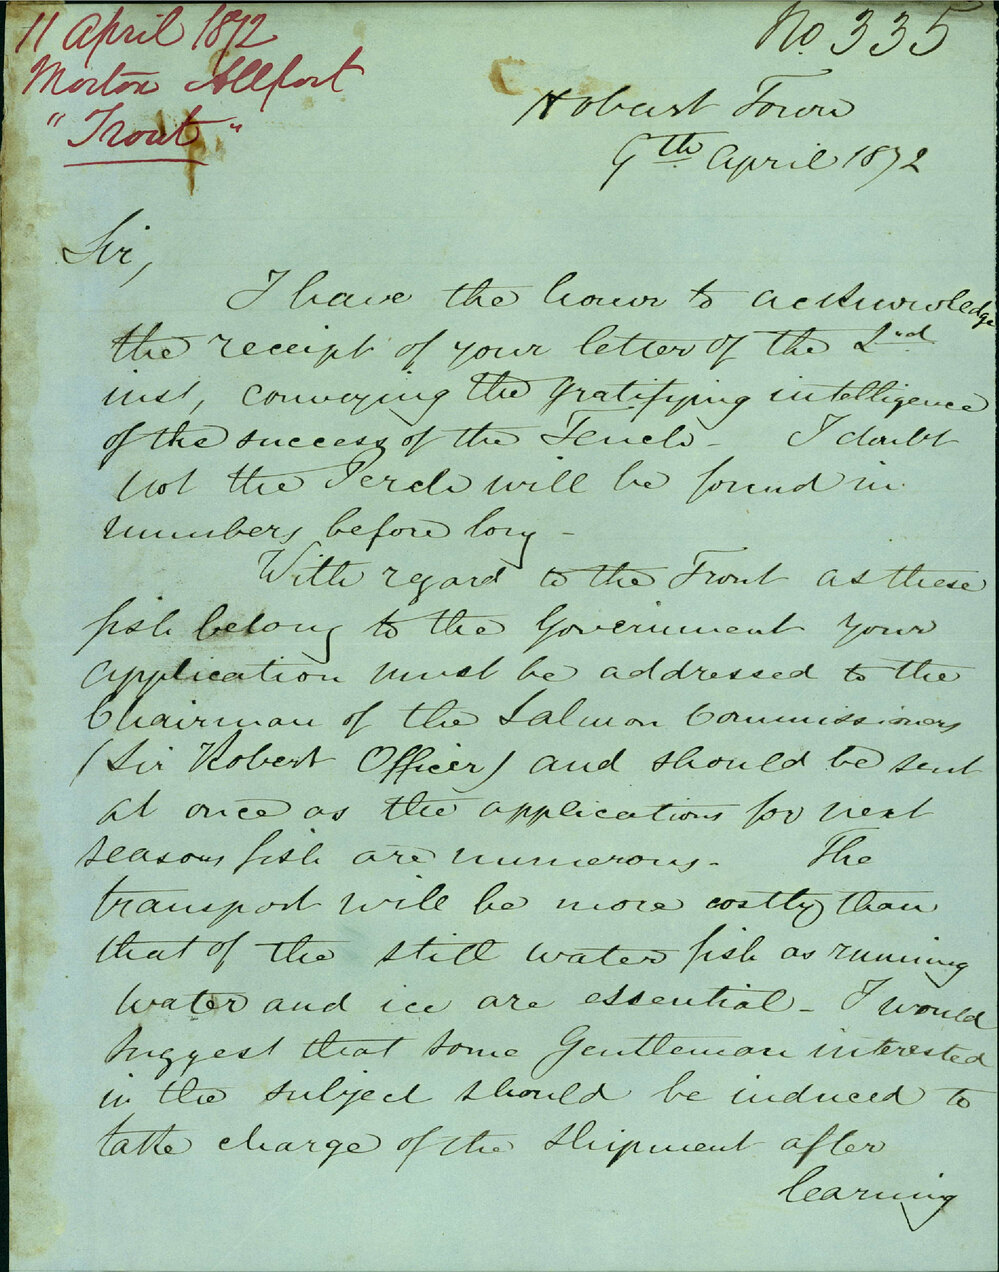 11 April 1872
Morton Allport
"Trout"
No. 335
Hobart Town
9th April 1872
Sir,
I have the honor to acknowledge
the receipt of your letter of the 2nd
inst, conveying the gratifying intelligence
of the success of the Tench - I doubt
not the Perch will be found in
numbers before long -
With regard to the Trout as these
fish belong to the Government your
application must be addressed to the
Chairman of the Salmon Commissioners
(Sir Robert Officer) and should be sent
at once as the applications for next
seasons fish are numerous - The
transport will be more costly than
that of the still water fish as running
water and ice are essential - I would
suggest that some Gentleman interested
in the subject should be induced to
take charge of the shipment after
learning